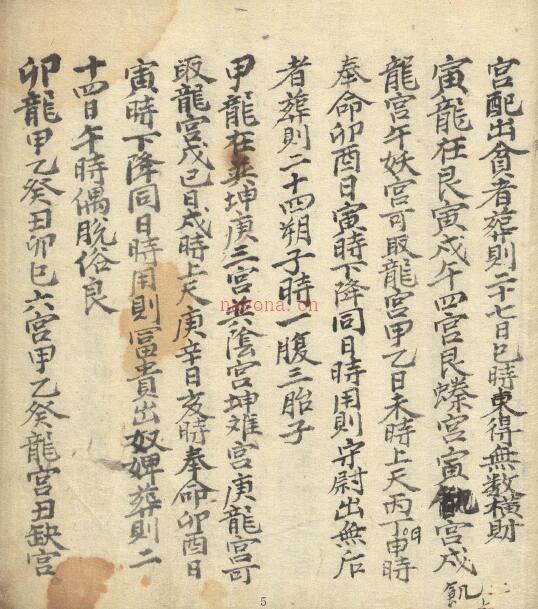 宮配出貧者葬則二十七日巳時東得無数横財
寅龍在艮寅戌午四宮艮爍宮寅飢宮戌
龍宮午妖宮可取龍宮甲乙日未時上天丙丁日申時
奉命卯酉日寅時下降同日時用則守尉出無后
者葬則二十四朔子時一腹三胎子
甲龍在巽坤庚三宮巽陰宮坤雄宮庚龍宮可
取龍宮戊己日戌時上天庚辛日亥時奉命卯酉日
寅時下降同日時用則冨貴出奴婢葬則二
十四日午時偶脱俗良
卯龍甲乙癸丑卯巳六宮甲乙癸龍宮丑缺宮
飢
narona.cn
5